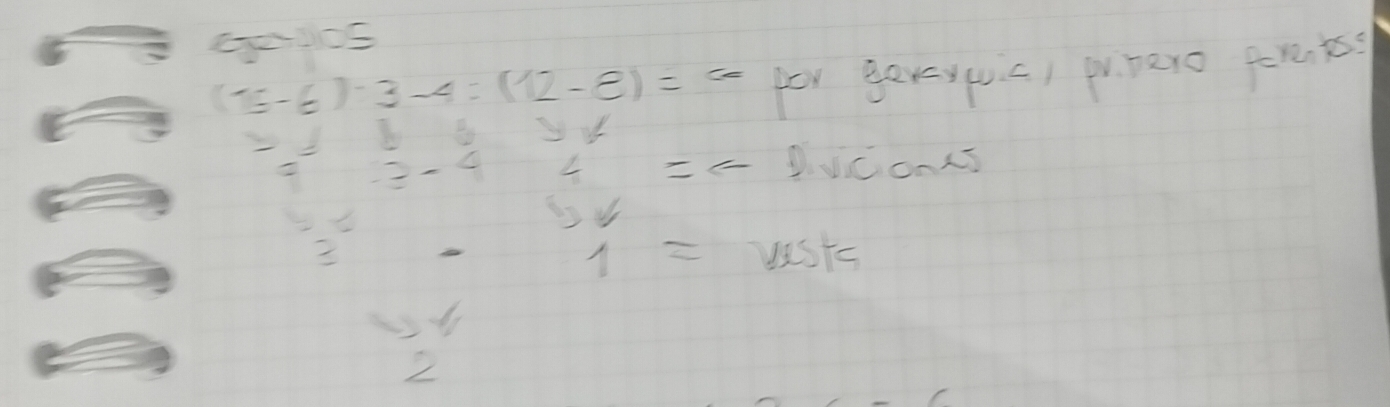 ejemplos
(15-6):3-4:(12-8)= ← por gerarquia, primero parentesis
9 :3-4 4 =← Diviciones
3 - 1 = resta
2